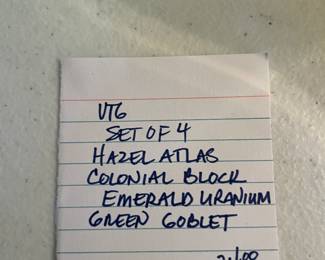 VTG
SET OF 4
HAZEL ATLAS
COLONIAL BLOCK
EMERALD URANIUM
GREEN GOBLET